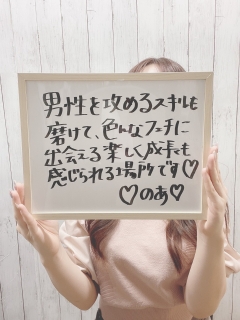 男性を攻めるスキルも
磨けて、色んなフェチに
出会える楽しく成長も
感じられる場所です♡
♡のあ♡